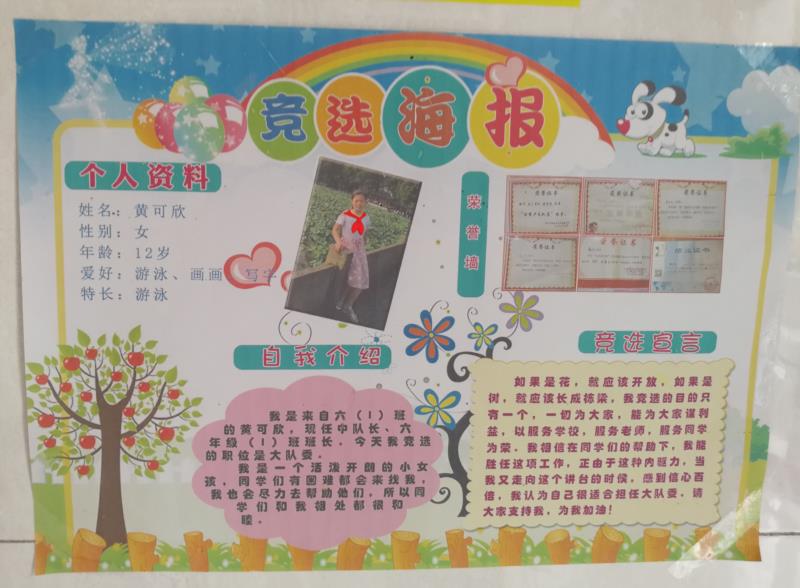 竞选海报
个人资料
姓名：黄可欣
性别：女
年龄：12岁
爱好：游泳、画画、写字
特长：游泳
荣誉墙
荣誉证书
荣誉证书
荣誉证书
荣誉证书
荣誉证书
自我介绍
我是来自六（1）班
的黄可欣，现任中队长、六
年级（1）班班长。今天我竞选
的职位是大队委。
我是一个活泼开朗的小女
孩，同学们有困难都会来找我，
我也会尽力去帮助他们，所以同
学们和我相处都很和
睦。
竞选宣言
如果是花，就应该开放，如果是
树，就应该长成栋梁，我竞选的目的只
有一个，一切为大家，能为大家谋利
益，以服务学校，服务老师，服务同学
为荣。我相信在同学们的帮助下，我能
胜任这项工作，正由于这种内驱力，当
我又走向这个讲台的时候，感到信心百
倍，我认为自己很适合担任大队委，请
大家支持我，为我加油！